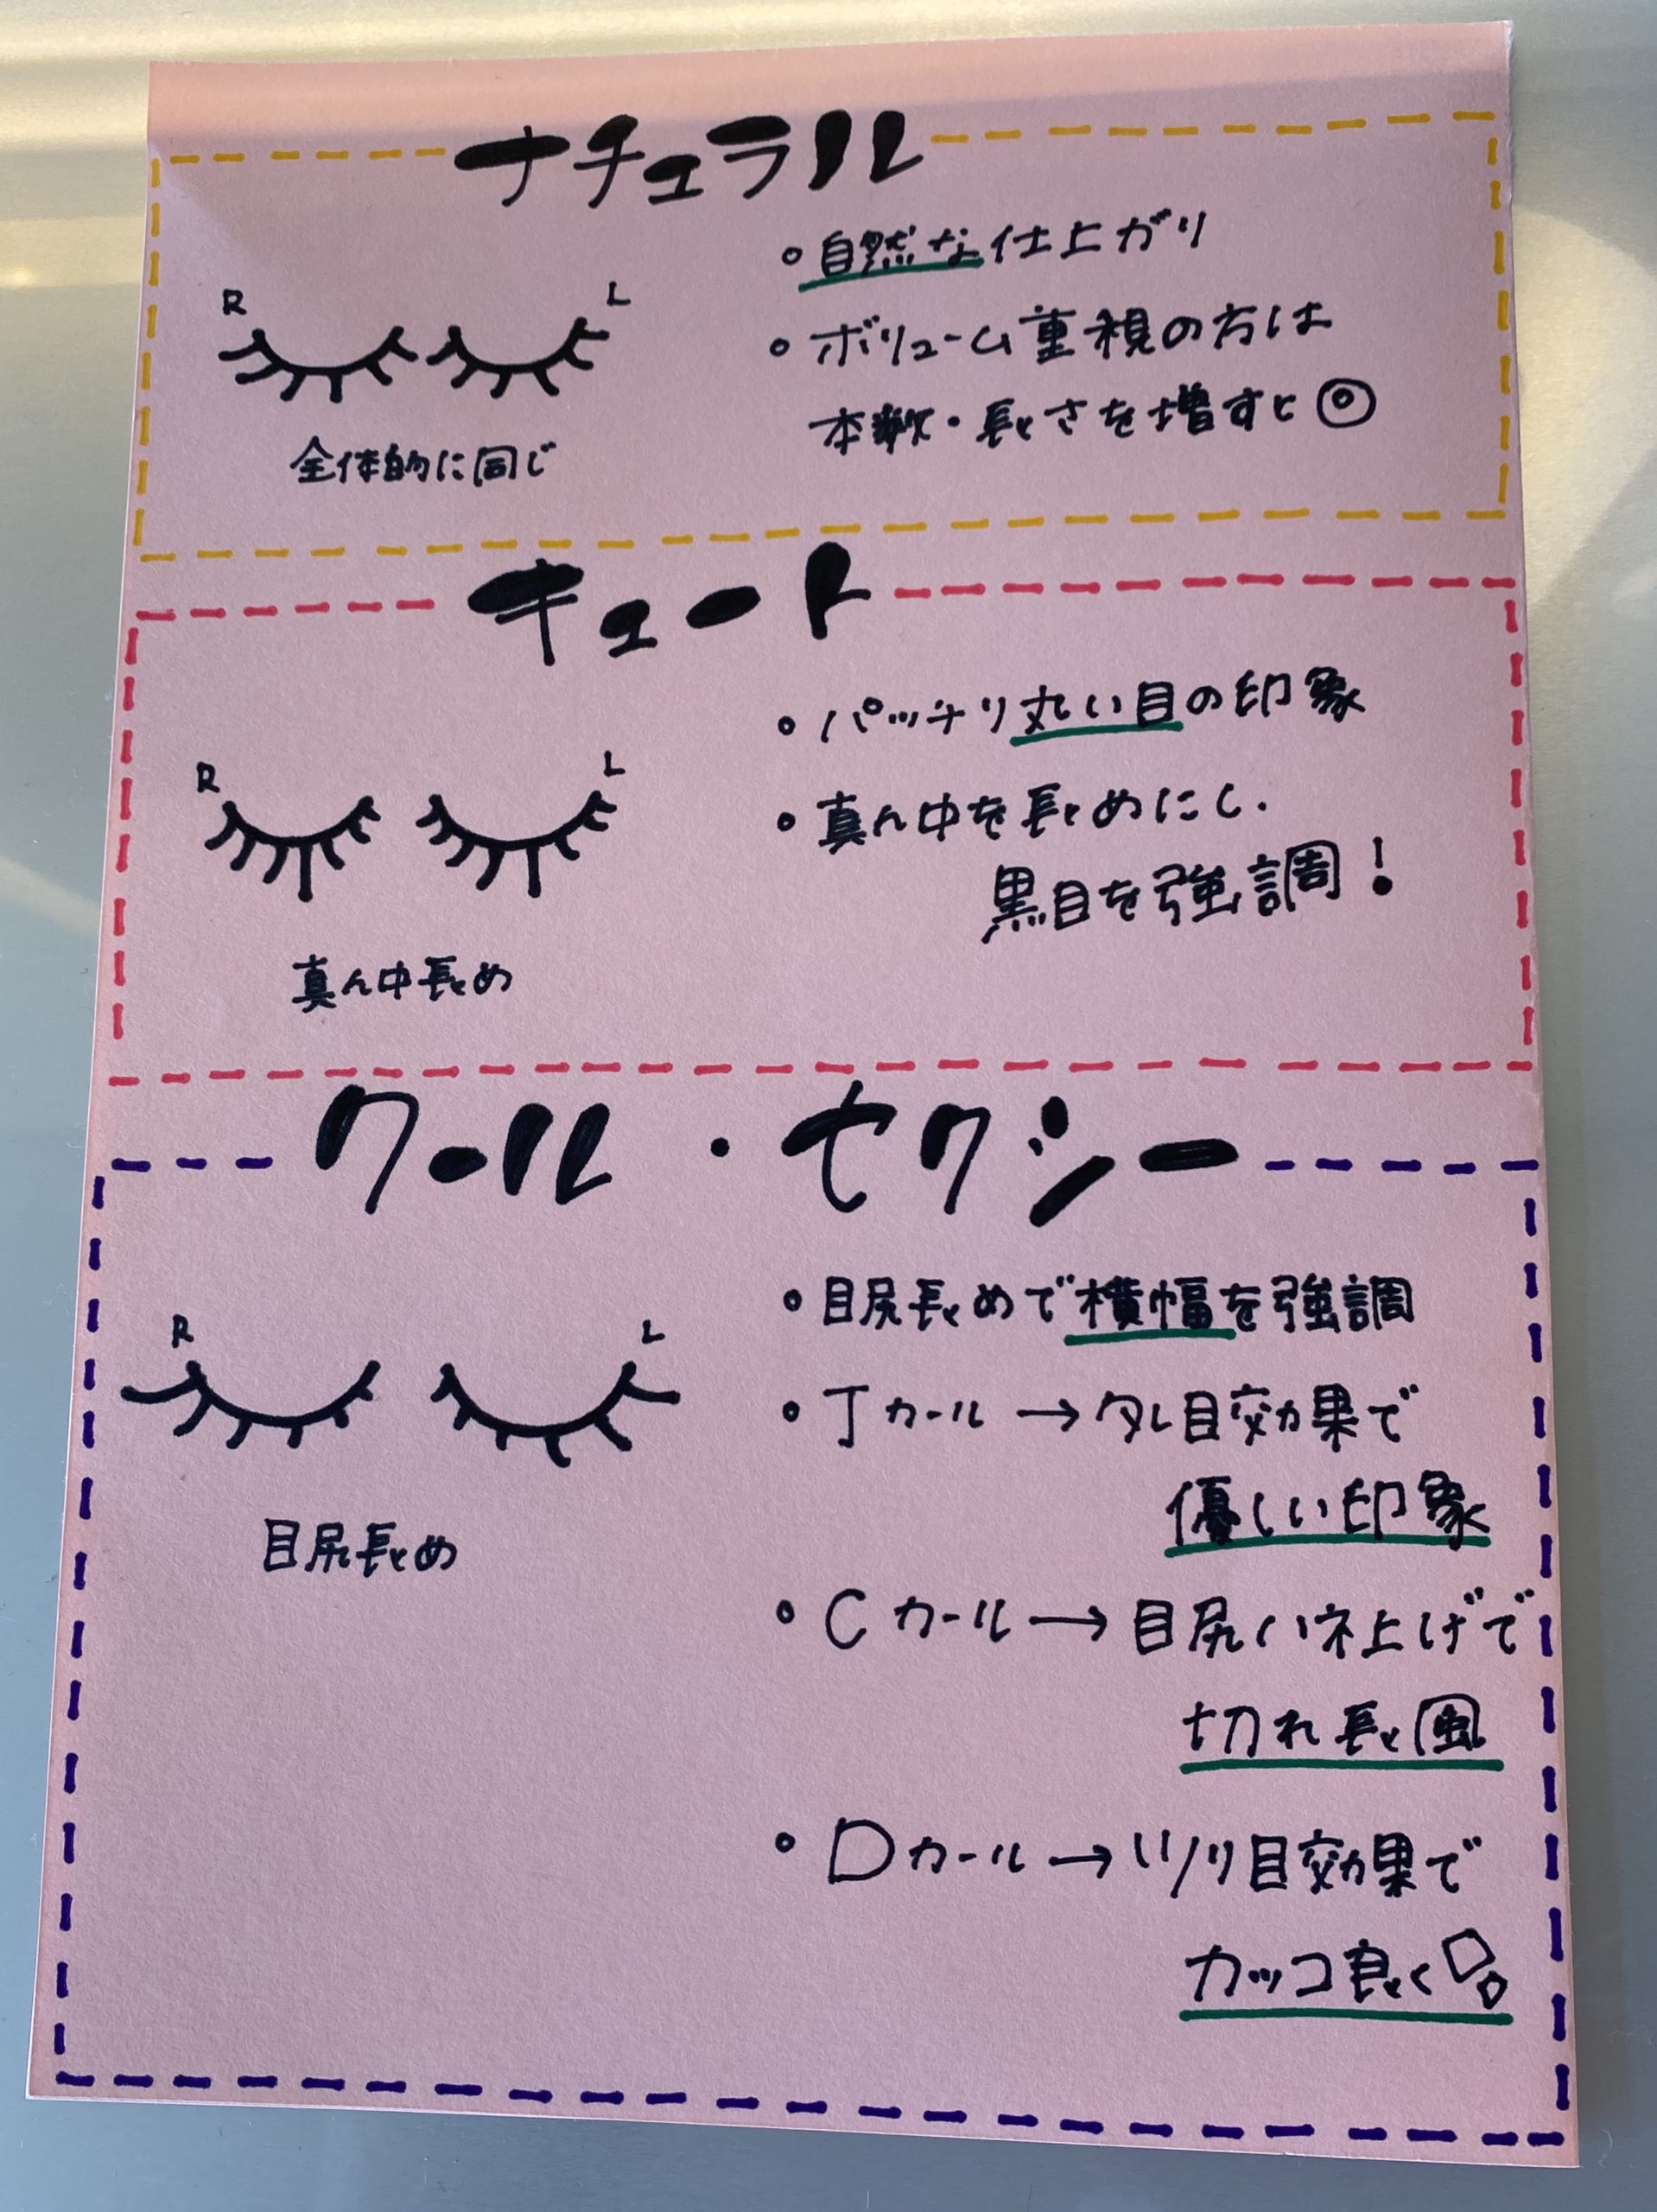 ナチュラル
R L
全体的に同じ
。自然な仕上がり
。ボリューム重視の方は
本数・長さを増すと◎
キュート
R L
真ん中長め
。パッチリ丸い目の印象
。真ん中を長めにし、
黒目を強調!
クール・セクシー
R L
目尻長め
。目尻長めで横幅を強調
。Jカール→タレ目効果で
優しい印象
。Cカール→目尻ハネ上げで
切れ長風
。Dカール→ツリ目効果で
カッコ良く